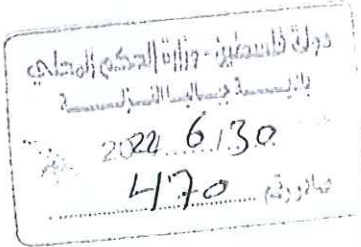 دولة فلسطين - وزارة الحكم المحلي
بلديـــــة
2022 6/30
صادر رقم 470